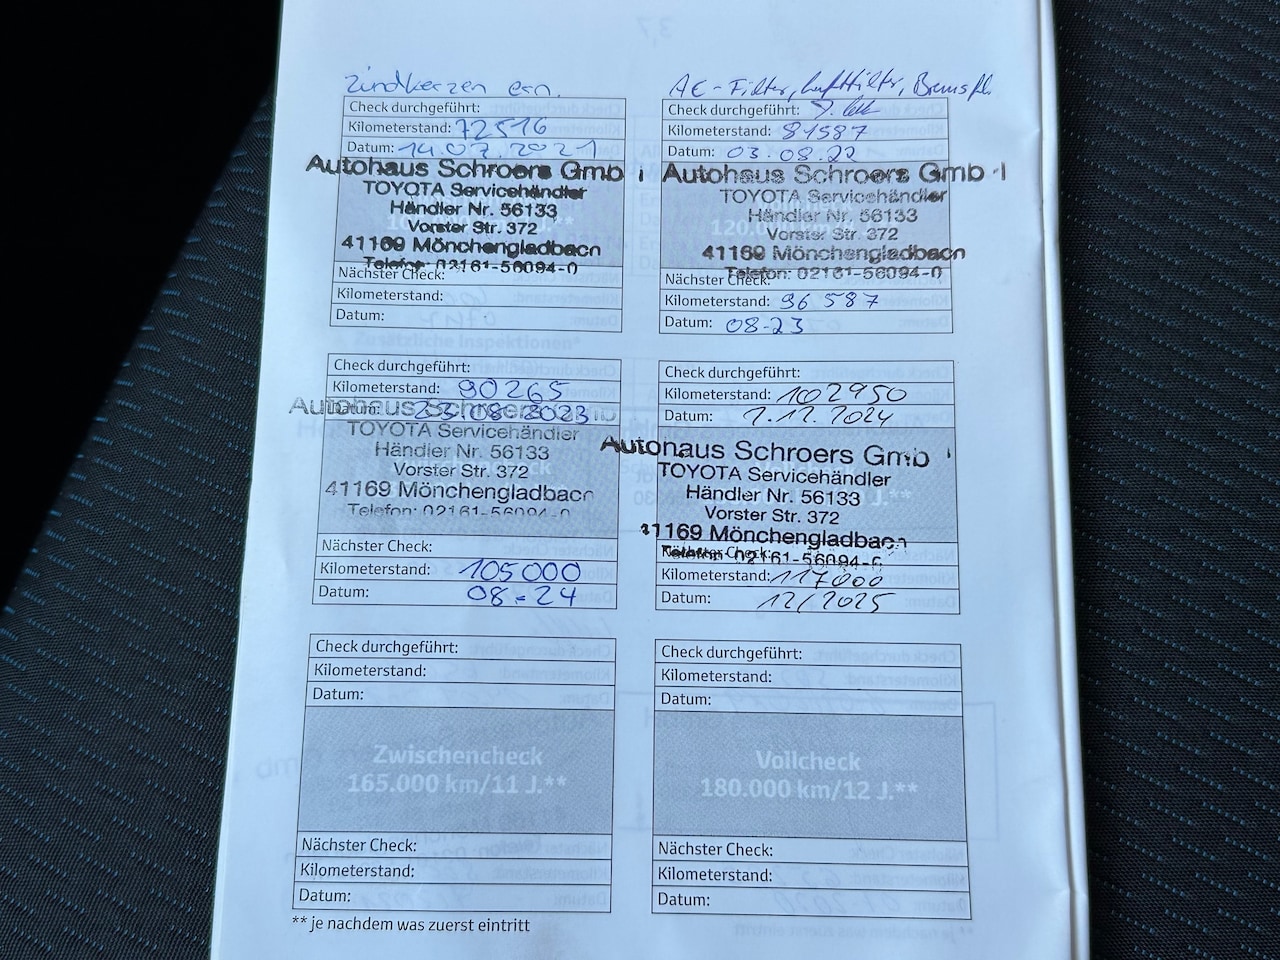 Zündkerzen ern.
Check durchgeführt:
Kilometerstand: 72516
Datum: 14.07.2021
Autohaus Schroers Gmb
TOYOTA Servicehändler
Händler Nr. 56133
Vorster Str. 372
41169 Mönchengladbach
Telefon: 02161-56094-0
Nächster Check:
Kilometerstand:
Datum:
AE-Filter, Luftfilter, Bremsfl.
Check durchgeführt:
Kilometerstand: 81587
Datum: 03.08.22
Autohaus Schroers Gmb
TOYOTA Servicehändler
120.000
Händler Nr. 56133
Vorster Str. 372
41169 Mönchengladbach
Telefon: 02161-56094-0
Nächster Check:
Kilometerstand: 96587
Datum: 08-23
Check durchgeführt:
Kilometerstand: 90265
Datum: 23.08.2023
Autohaus Schroers Gmb
TOYOTA Servicehändler
Händler Nr. 56133
Vorster Str. 372
41169 Mönchengladbach
Telefon: 02161-56094-0
Nächster Check:
Kilometerstand: 105000
Datum: 08-24
Check durchgeführt:
Kilometerstand: 102950
Datum: 7.12.2024
Autohaus Schroers Gmb
TOYOTA Servicehändler
Händler Nr. 56133
J.**
Vorster Str. 372
41169 Mönchengladbach
Telefon: 02161-56094-0
Nächster Check:
Kilometerstand: 117000
Datum: 12/2025
Check durchgeführt:
Kilometerstand:
Datum:
Zwischencheck
165.000 km/11 J.**
Nächster Check:
Kilometerstand:
Datum:
Check durchgeführt:
Kilometerstand:
Datum:
Vollcheck
180.000 km/12 J.**
Nächster Check:
Kilometerstand:
Datum:
** je nachdem was zuerst eintritt